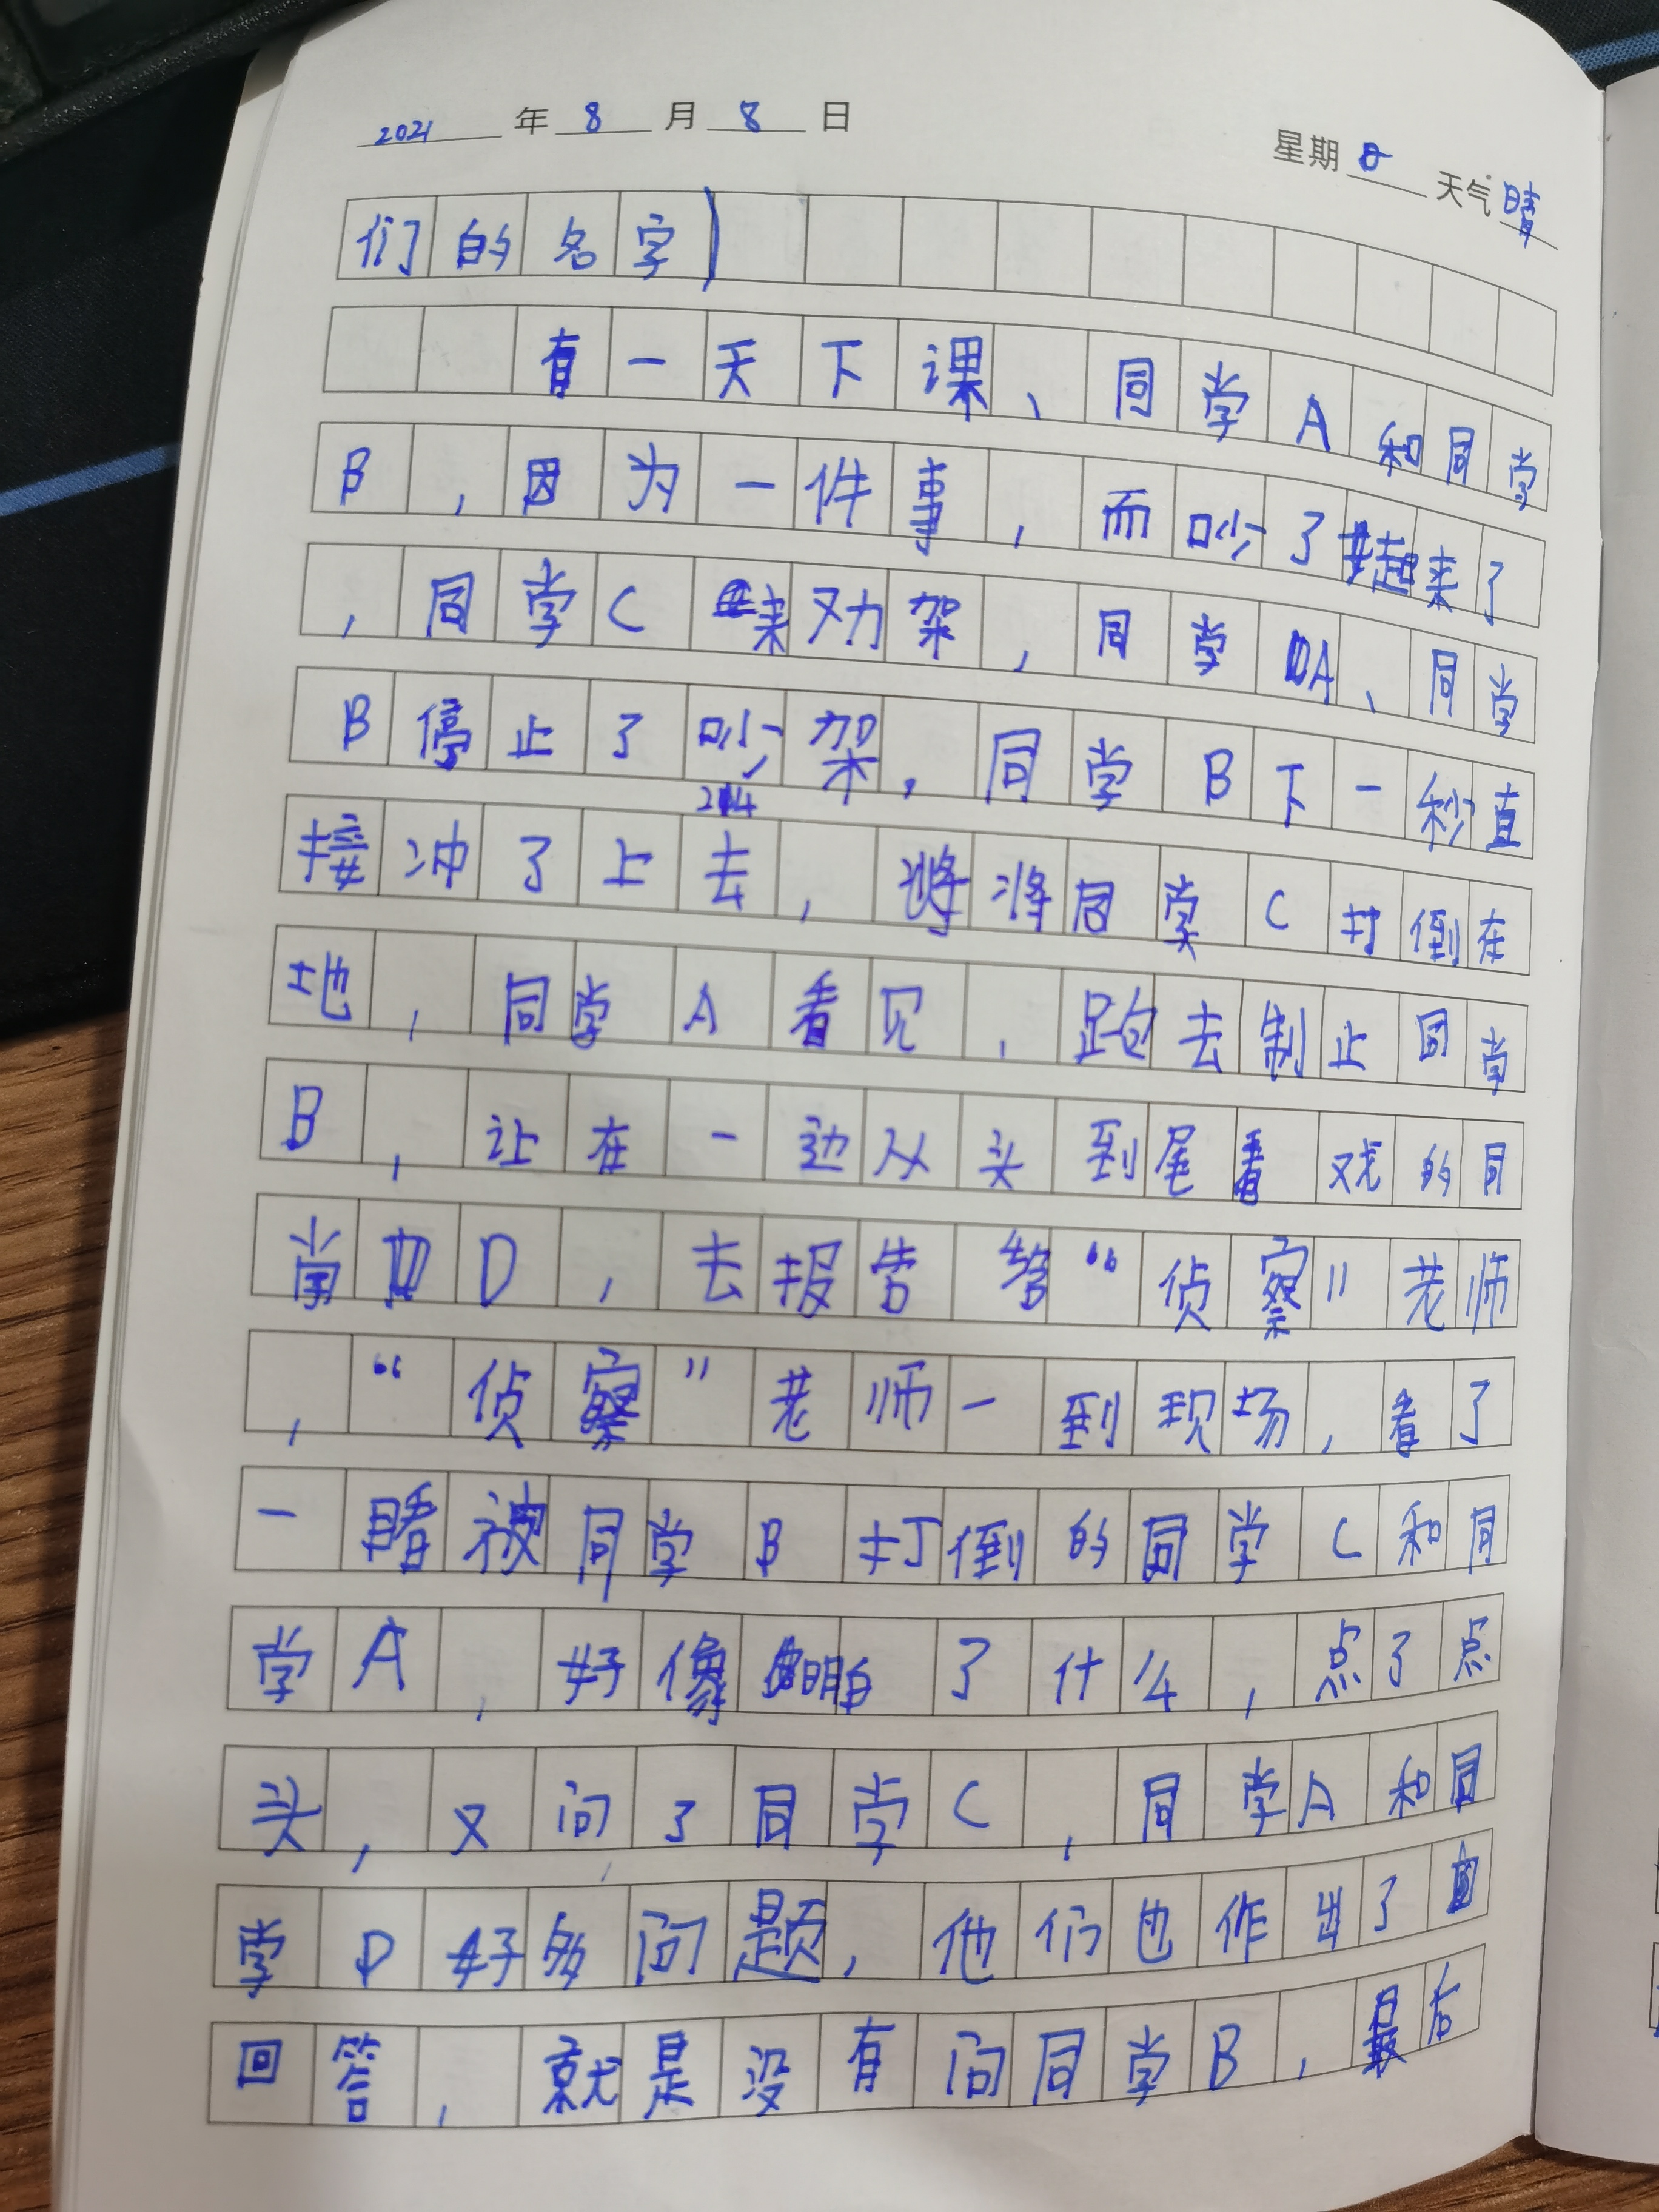 2021年8月8日 星期日 天气晴
们的名字)
有一天下课、同学A和同学
B，因为一件事，而吵了起来了
，同学C来劝架，同学A、同学
B停止了吵架，同学B下一秒直
214
接冲了上去，将将同学C打倒在
地，同学A看见，跑去制止同学
B，让在一边从头到尾看戏的同
学D，去报告给“侦察”老师
，“侦察”老师一到现场，看了
一睹被同学B打倒的同学C和同
学A，好像明白了什么，点了点
头，又问了同学C，同学A和同
学D好多问题，他们也作出了
回答，就是没有问同学B，最后